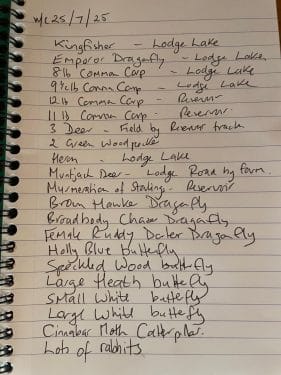 W/C 25/7/25
Kingfisher - Lodge Lake
Emperor Dragonfly - Lodge Lake
8lb Common Carp - Lodge Lake
9½lb Common Carp - Lodge Lake
12lb Common Carp - Reservoir
11lb Common Carp - Reservoir.
3 Deer - Field by Reservoir track
2 Green Woodpecker
Heron - Lodge Lake
Muntjack Deer - Lodge Road by farm.
Murmeration of Starling - Reservoir
Brown Hawker Dragonfly
Broadbody Chaser Dragonfly
Female Ruddy Darter Dragonfly
Holly Blue butterfly
Speckled Wood butterfly
Large Heath butterfly
Small White butterfly
Large White butterfly
Cinnabar Moth Caterpillar.
Lots of rabbits